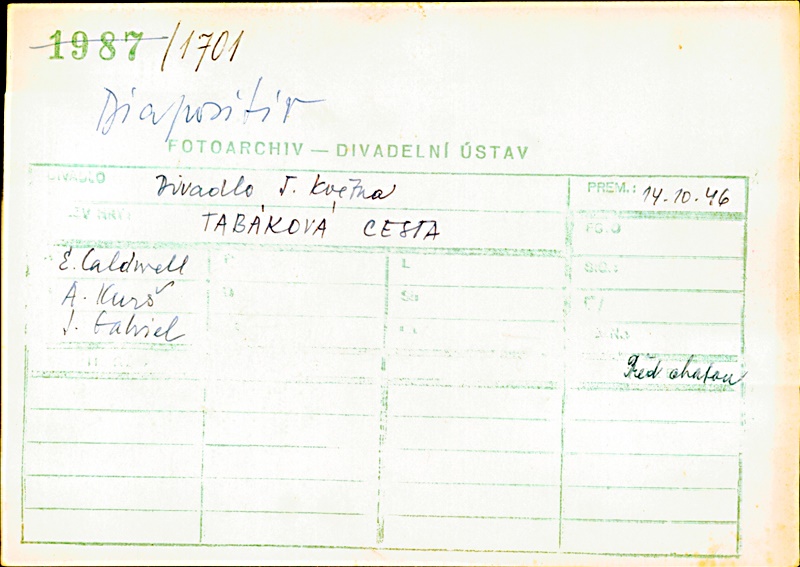 1987 /1701
Diapositiv
FOTOARCHIV — DIVADELNÍ ÚSTAV
DIVADLO Divadlo 5. Května PREM.: 14.10.46
TABÁKOVÁ CESTA
E. Caldwell
A. Kurš
J. Gabriel
Před chatou